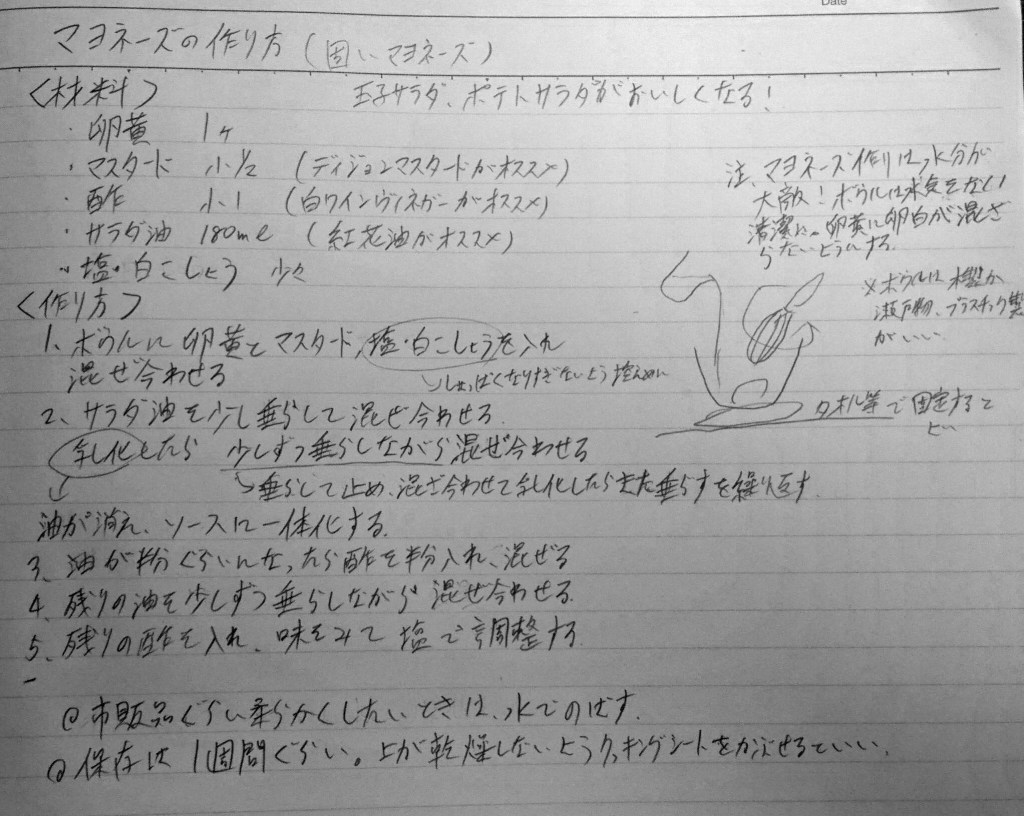 Date
マヨネーズの作り方（固いマヨネーズ）
〈材料〉
玉子サラダ、ポテトサラダがおいしくなる！
・卵黄 1ヶ
・マスタード 小1/2 （ディジョンマスタードがオススメ）
・酢 小1 （白ワインヴィネガーがオススメ）
・サラダ油 180ml （紅花油がオススメ）
・塩・白こしょう 少々
注、マヨネーズ作りは、水分が
大敵！ボウルは水気をなく
清潔に。卵黄に卵白が混ざ
らないようにする。
※ボウルは木製か
瀬戸物、プラスチック製
がいい。
タオル等で固定すると
よい
〈作り方〉
1、ボウルに卵黄とマスタード、塩・白こしょうを入れ
混ぜ合わせる
しょっぱくなりすぎないよう控えめに
2、サラダ油を少し垂らして混ぜ合わせる。
乳化したら 少しずつ垂らしながら混ぜ合わせる
垂らして止め、混ぜ合わせて乳化したらまた垂らすを繰り返す。
油が消え、ソースに一体化する。
3、油が半分ぐらいになったら酢を半分入れ、混ぜる
4、残りの油を少しずつ垂らしながら 混ぜ合わせる。
5、残りの酢を入れ、味をみて 塩で調整する。
@市販品ぐらい柔らかくしたいときは、水でのばす。
@保存は 1週間ぐらい。上が乾燥しないようクッキングシートをかぶせるといい。